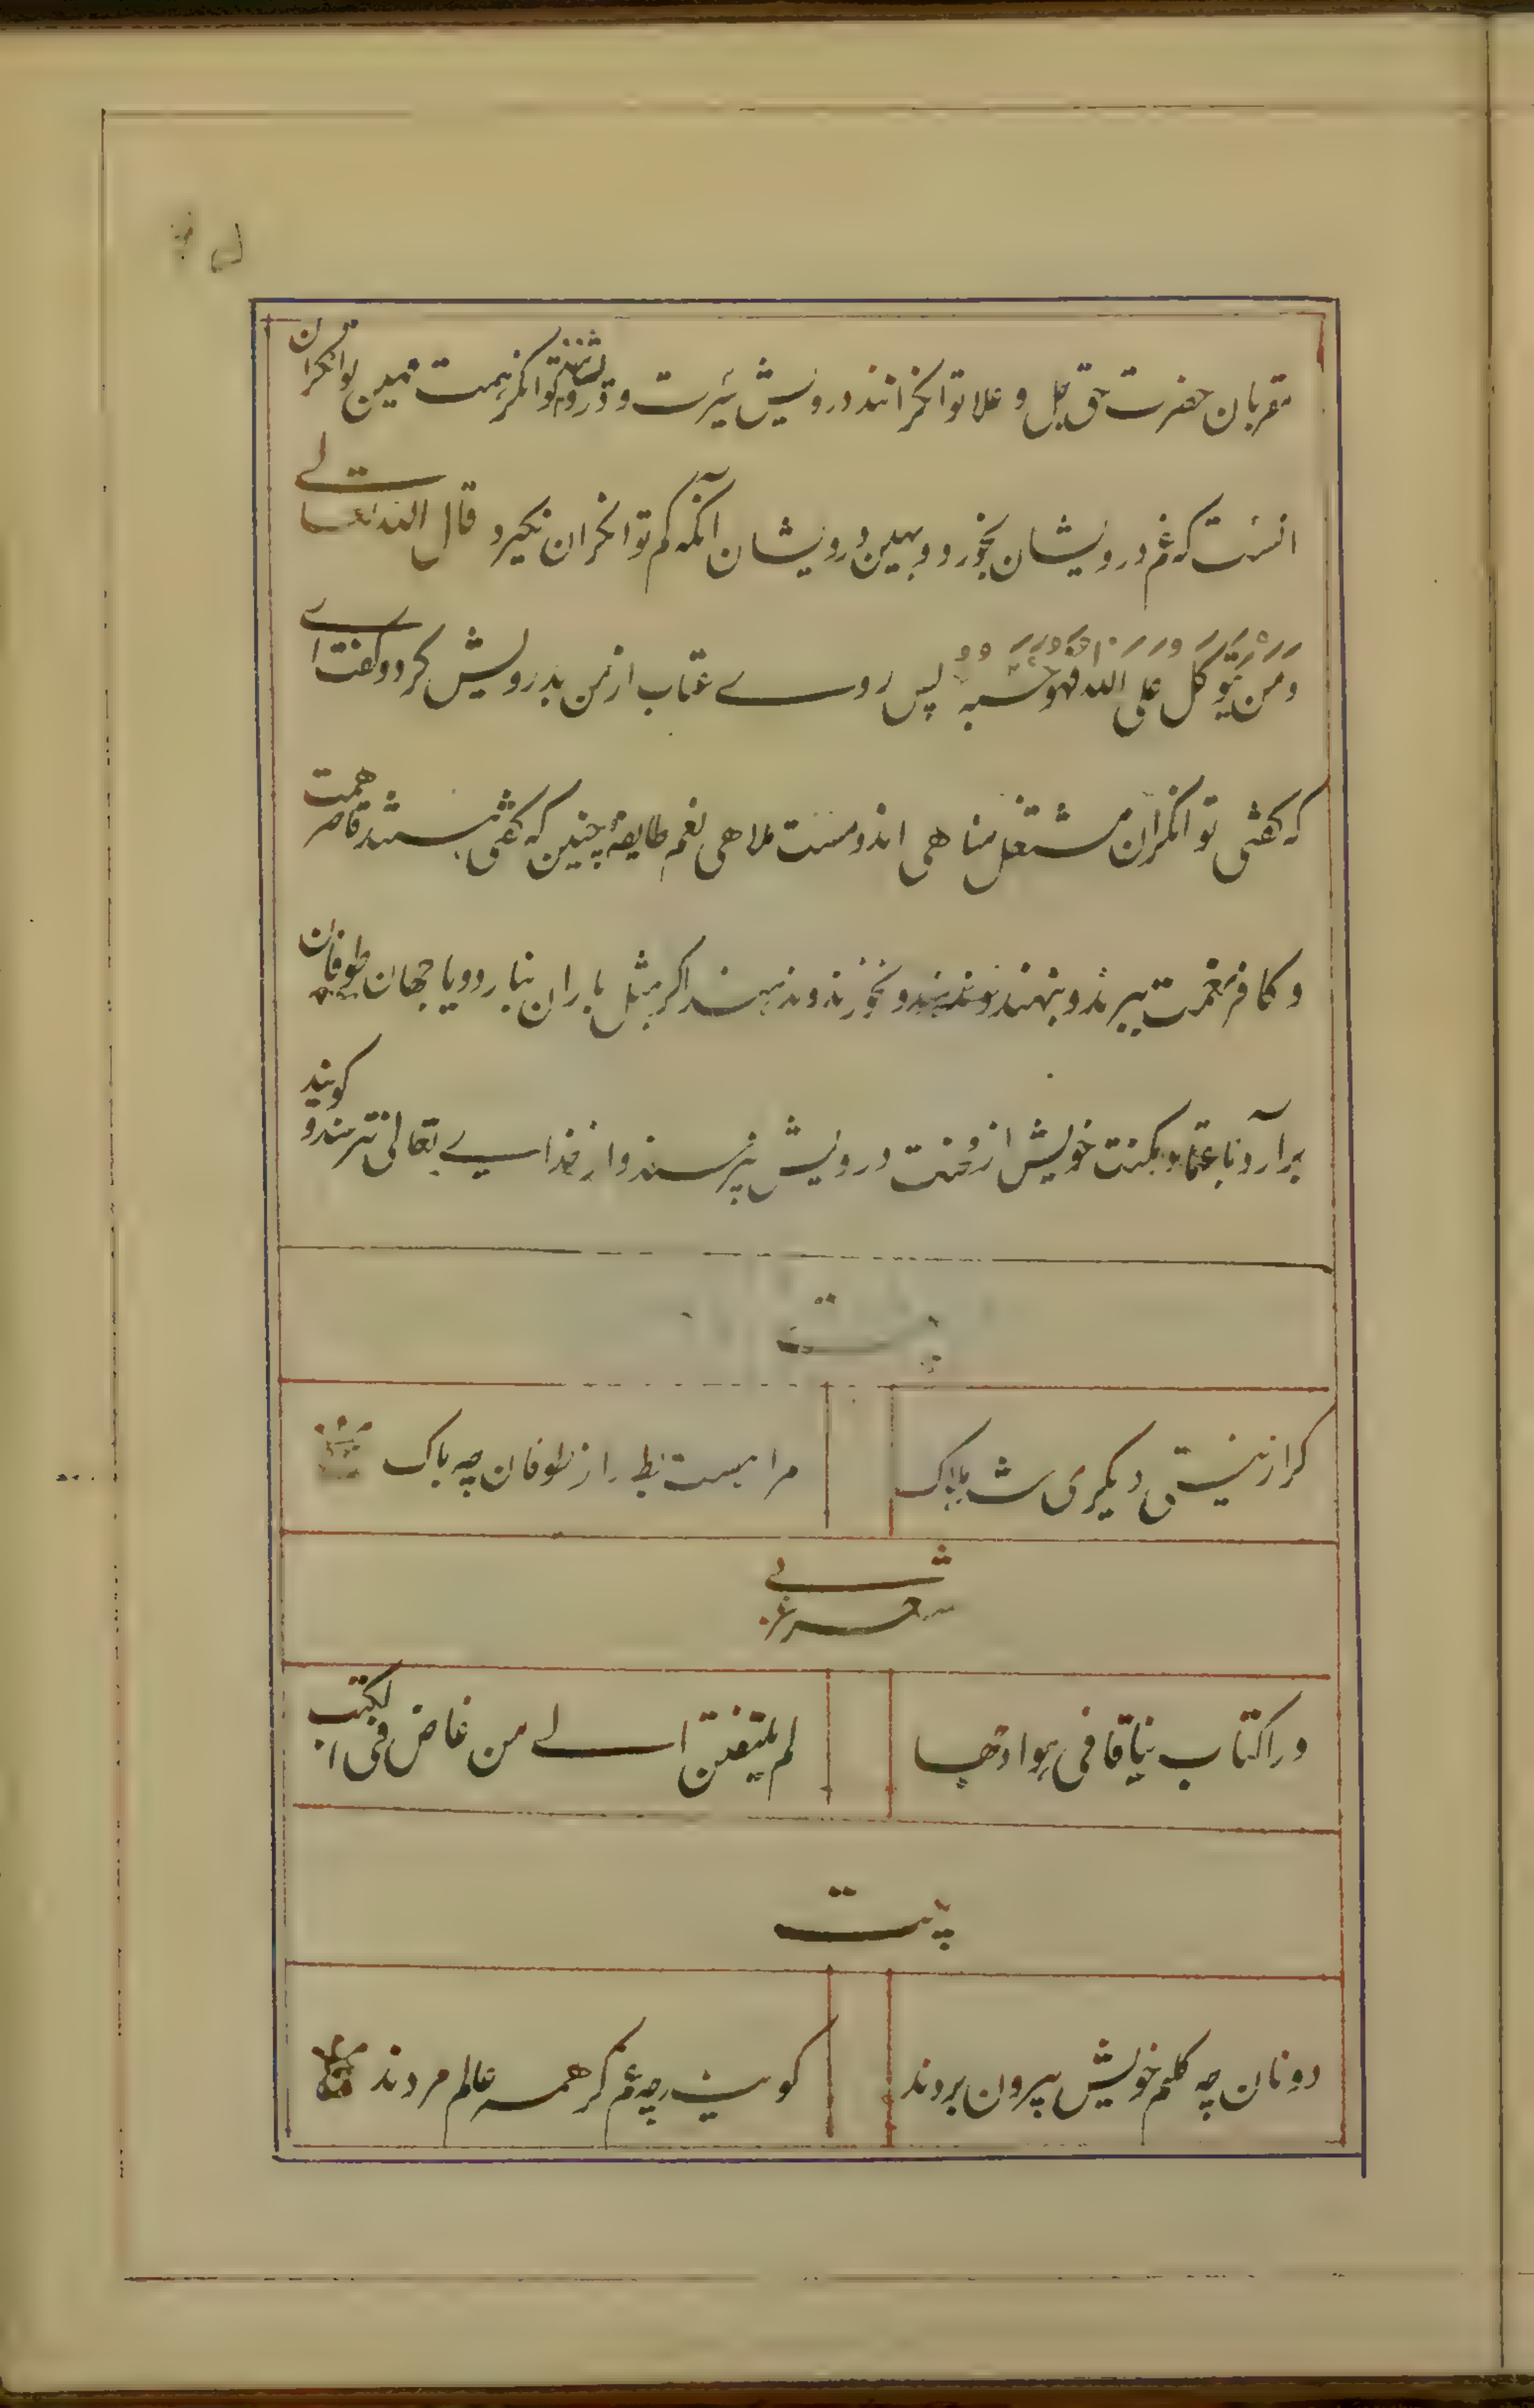 مقربان حضرت حق جل و علا توانکرانند درویش سیرت و درویشند توانکر همت مهین توانکران
انست که غم درویشان بخورد و بهین درویشان آنکه کم توانکران نکیرد قال الله تعالے
وَمَنْ یَتَوَکَّلْ عَلَی اللهِ فَهُوَ حَسْبُهُ پس روے عتاب از من بدرویش کرد و کفت اے
که کفتی توانکران مشتغل مناهی اند و مست ملاهی نعم طایفهٔ چنین که کفتی هستند قاصر همت
و کافر نعمت ببرند و بنهند و نخورند و ندهند اکر بمثل باران نبارد و یا جهان طوفان
برآرد باعتماد مکنت خویش از محنت درویش نپرسند و از خداے تعالی نترسند و کویند
بیت
کر از نیستی دیکری شد هلاک
مرا هست بط را ز طوفان چه باک
شعر عربے
وراکتاب نیاقا فی هوادجها
لم یلتفتن الے من غاض فی الکتب
بیت
دونان چه کلیم خویش بیرون بردند
کویند چه غم کر همه عالم مردند